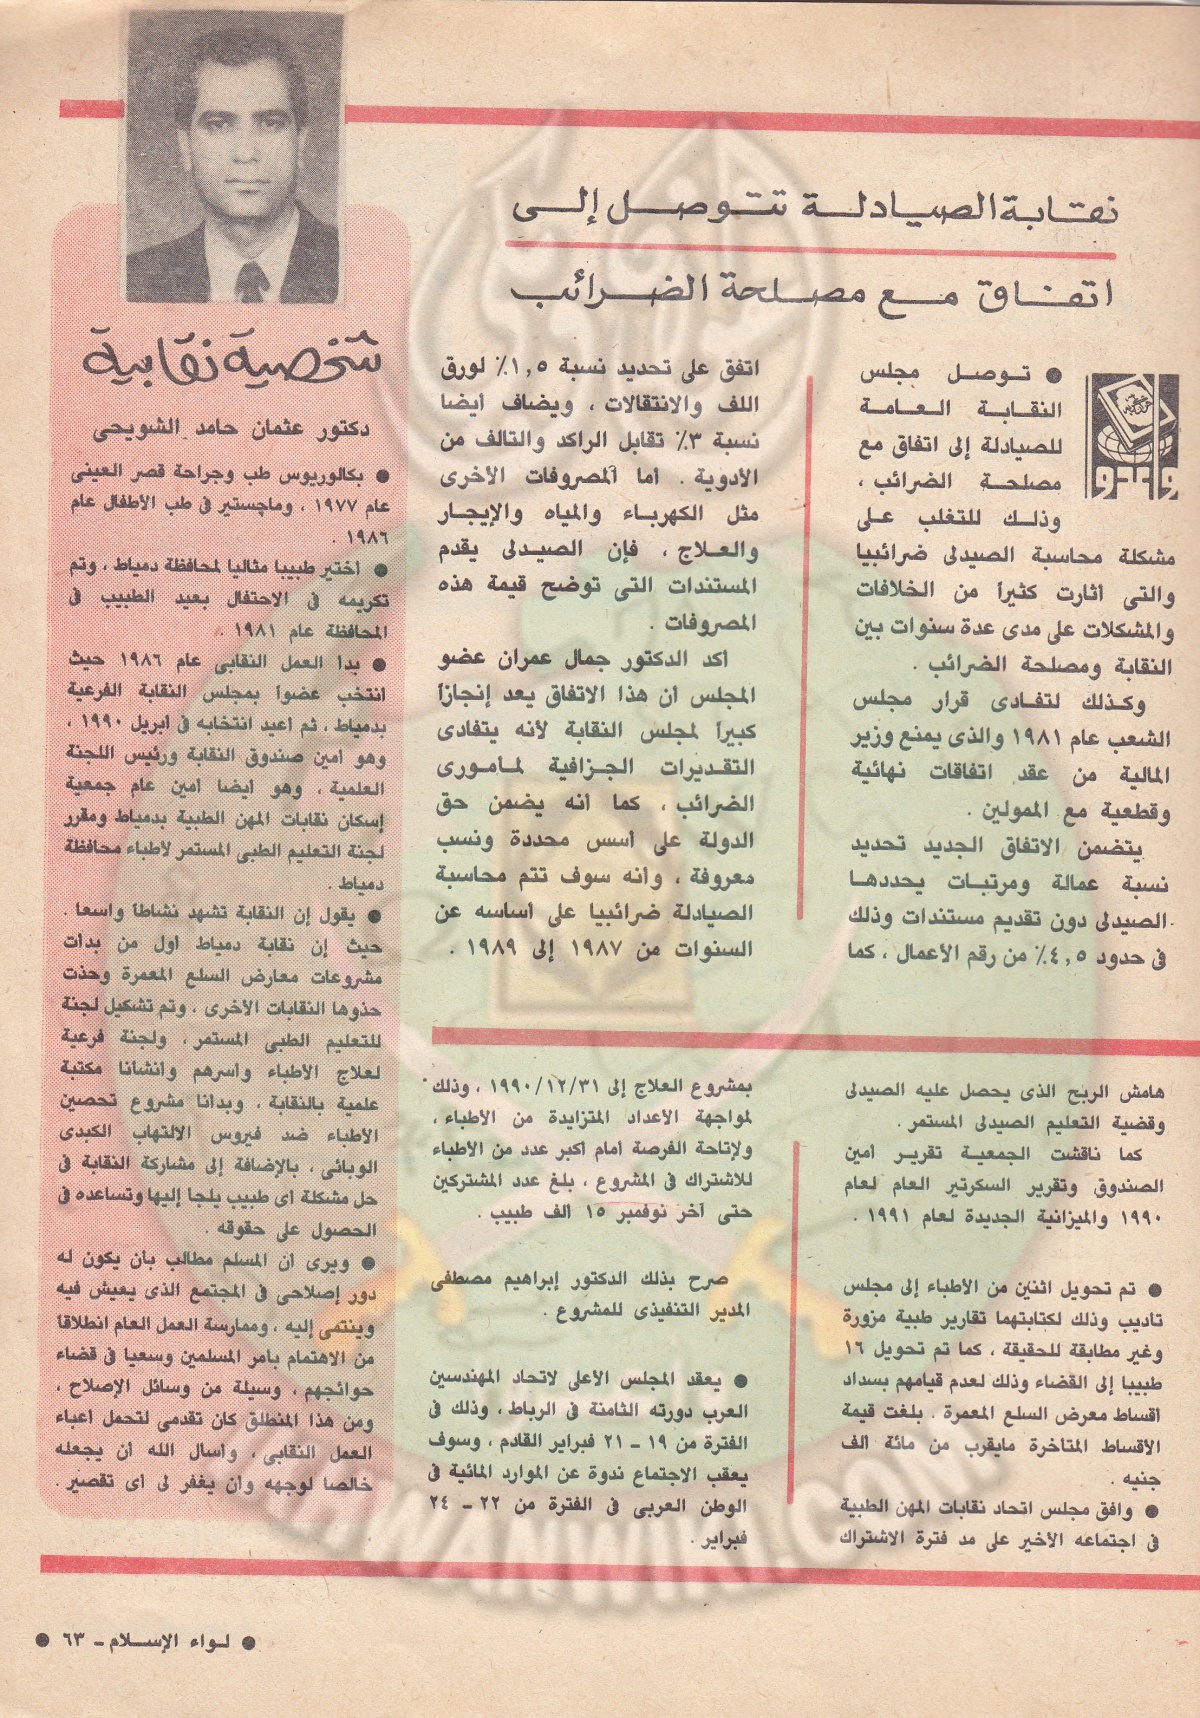 نقابة الصيادلة تتوصل إلى
اتفاق مع مصلحة الضرائب
● توصل مجلس
النقابة العامة
للصيادلة إلى اتفاق مع
مصلحة الضرائب ،
وذلك للتغلب على
مشكلة محاسبة الصيدلى ضرائبيا
والتى أثارت كثيراً من الخلافات
والمشكلات على مدى عدة سنوات بين
النقابة ومصلحة الضرائب .
وكذلك لتفادى قرار مجلس
الشعب عام ١٩٨١ والذى يمنع وزير
المالية من عقد اتفاقات نهائية
وقطعية مع الممولين .
يتضمن الاتفاق الجديد تحديد
نسبة عمالة ومرتبات يحددها
الصيدلى دون تقديم مستندات وذلك
فى حدود ٤,٥٪ من رقم الأعمال ، كما
اتفق على تحديد نسبة ١,٥٪ لورق
اللف والانتقالات ، ويضاف أيضا
نسبة ٣٪ تقابل الراكد والتالف من
الأدوية . أما المصروفات الأخرى
مثل الكهرباء والمياه والإيجار
والعلاج ، فإن الصيدلى يقدم
المستندات التى توضح قيمة هذه
المصروفات .
أكد الدكتور جمال عمران عضو
المجلس أن هذا الاتفاق يعد إنجازاً
كبيراً لمجلس النقابة لأنه يتفادى
التقديرات الجزافية لمأمورى
الضرائب ، كما أنه يضمن حق
الدولة على أسس محددة ونسب
معروفة ، وأنه سوف تتم محاسبة
الصيادلة ضرائبيا على أساسه عن
السنوات من ١٩٨٧ إلى ١٩٨٩ .
هامش الربح الذى يحصل عليه الصيدلى
وقضية التعليم الصيدلى المستمر .
كما ناقشت الجمعية تقرير أمين
الصندوق وتقرير السكرتير العام لعام
١٩٩٠ والميزانية الجديدة لعام ١٩٩١ .
● تم تحويل اثنين من الأطباء إلى مجلس
تأديب وذلك لكتابتهما تقارير طبية مزورة
وغير مطابقة للحقيقة ، كما تم تحويل ١٦
طبيبا إلى القضاء وذلك لعدم قيامهم بسداد
أقساط معرض السلع المعمرة . بلغت قيمة
الأقساط المتأخرة مايقرب من مائة ألف
جنيه .
● وافق مجلس اتحاد نقابات المهن الطبية
فى اجتماعه الأخير على مد فترة الاشتراك
بمشروع العلاج إلى ١٩٩٠/١٢/٣١ ، وذلك
لمواجهة الأعداد المتزايدة من الأطباء ،
ولإتاحة الفرصة أمام أكبر عدد من الأطباء
للاشتراك فى المشروع ، بلغ عدد المشتركين
حتى آخر نوفمبر ١٥ ألف طبيب .
صرح بذلك الدكتور إبراهيم مصطفى
المدير التنفيذى للمشروع .
● يعقد المجلس الأعلى لاتحاد المهندسين
العرب دورته الثامنة فى الرباط ، وذلك فى
الفترة من ١٩ - ٢١ فبراير القادم ، وسوف
يعقب الاجتماع ندوة عن الموارد المائية فى
الوطن العربى فى الفترة من ٢٢ - ٢٤
فبراير .
شخصية نقابية
دكتور عثمان حامد الشويحى
● بكالوريوس طب وجراحة قصر العينى
عام ١٩٧٧ ، وماجستير فى طب الأطفال عام
١٩٨٦ .
● أختير طبيبا مثاليا لمحافظة دمياط ، وتم
تكريمه فى الاحتفال بعيد الطبيب فى
المحافظة عام ١٩٨١ .
● بدأ العمل النقابى عام ١٩٨٦ حيث
انتخب عضواً بمجلس النقابة الفرعية
بدمياط ، ثم أعيد انتخابه فى ابريل ١٩٩٠ ،
وهو أمين صندوق النقابة ورئيس اللجنة
العلمية ، وهو أيضا أمين عام جمعية
إسكان نقابات المهن الطبية بدمياط ومقرر
لجنة التعليم الطبى المستمر لأطباء محافظة
دمياط .
● يقول إن النقابة تشهد نشاطا واسعا .
حيث إن نقابة دمياط أول من بدأت
مشروعات معارض السلع المعمرة وحذت
حذوها النقابات الأخرى ، وتم تشكيل لجنة
للتعليم الطبى المستمر ، ولجنة فرعية
لعلاج الأطباء وأسرهم وأنشأنا مكتبة
علمية بالنقابة ، وبدأنا مشروع تحصين
الأطباء ضد فيروس الالتهاب الكبدى
الوبائى ، بالإضافة إلى مشاركة النقابة فى
حل مشكلة أى طبيب يلجأ إليها وتساعده فى
الحصول على حقوقه .
● ويرى أن المسلم مطالب بأن يكون له
دور إصلاحى فى المجتمع الذى يعيش فيه
وينتمى إليه ، وممارسة العمل العام انطلاقا
من الاهتمام بأمر المسلمين وسعيا فى قضاء
حوائجهم ، وسيلة من وسائل الإصلاح ،
ومن هذا المنطلق كان تقدمى لتحمل أعباء
العمل النقابى ، وأسأل الله أن يجعله
خالصا لوجهه وأن يغفر لى أى تقصير .
● لواء الإسلام - ٦٣ ●